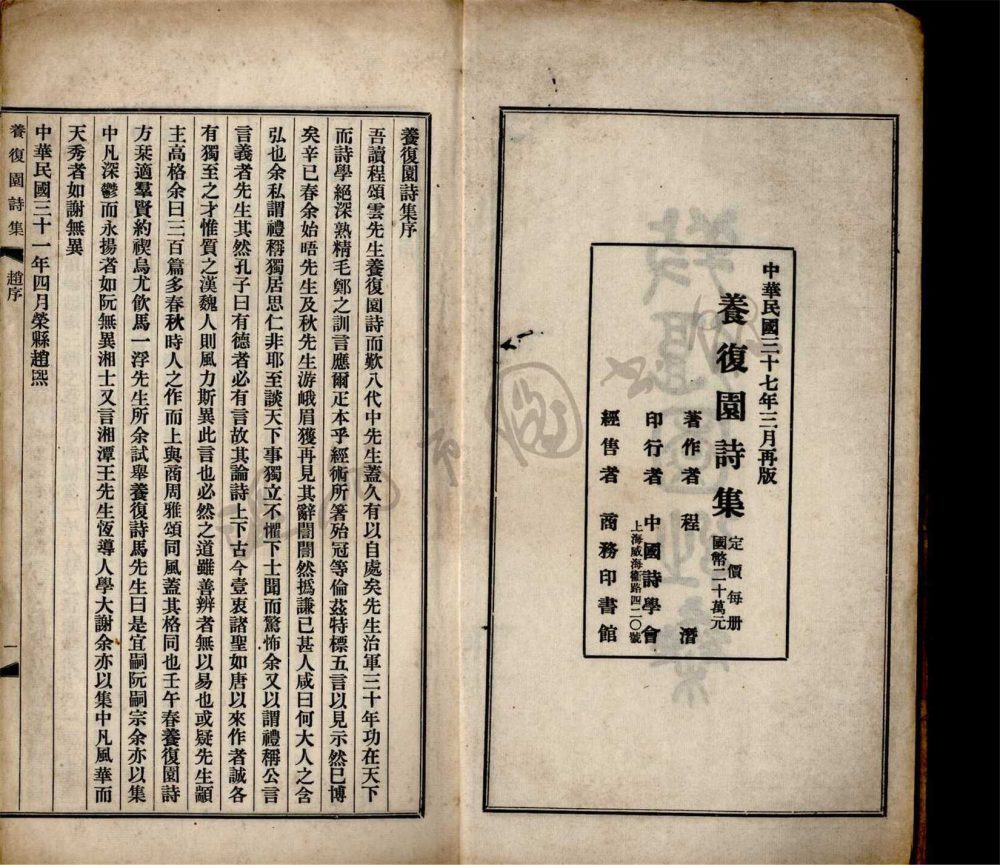 中華民國三十七年三月再版
養復園詩集
定價每册
國幣二十萬元
著作者 程潛
印行者 中國詩學會
上海威海衛路四二〇號
經售者 商務印書館
養復園詩集序
吾讀程頌雲先生養復園詩而歎八代中先生蓋久有以自處矣先生治軍三十年功在天下
而詩學絕深熟精毛鄭之訓言應爾疋本乎經術所箸殆冠等倫茲特標五言以見示然已博
矣辛巳春余始晤先生及秋先生游峨眉獲再見其辭誾誾然撝謙已甚人咸曰何大人之含
弘也余私謂禮稱獨居思仁非耶至談天下事獨立不懼下士聞而驚怖余又以謂禮稱公言
言義者先生其然孔子曰有德者必有言故其論詩上下古今壹衷諸聖如唐以來作者誠各
有獨至之才惟質之漢魏人則風力斯異此言也必然之道雖善辨者無以易也或疑先生顓
主高格余曰三百篇多春秋時人之作而上與商周雅頌同風蓋其格同也壬午春養復園詩
方栞適羣賢約禊烏尤飲馬一浮先生所余試舉養復詩馬先生曰是宜嗣阮嗣宗余亦以集
中凡深鬱而永揚者如阮無異湘士又言湘潭王先生恆導人學大謝余亦以集中凡風華而
天秀者如謝無異
中華民國三十一年四月榮縣趙熙
養復園詩集
趙序
一